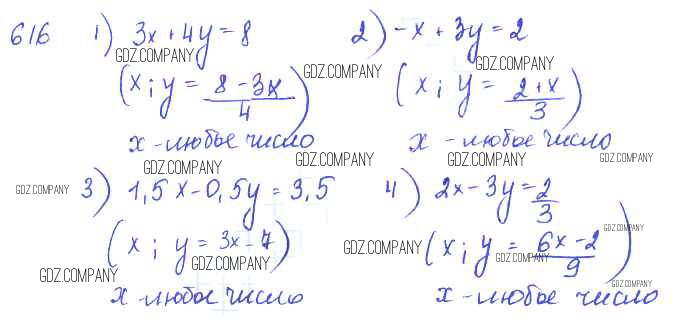 616 1) 3x + 4y = 8
GDZ.COMPANY
(x; y = (8 - 3x)/4)
x - любое число
2) -x + 3y = 2
GDZ.COMPANY
GDZ.COMPANY
(x; y = (2 + x)/3)
x - любое число
GDZ.COMPANY
GDZ.COMPANY
GDZ.COMPANY
GDZ.COMPANY
GDZ.COMPANY
3) 1,5x - 0,5y = 3,5
(x; y = 3x - 7)
GDZ.COMPANY
GDZ.COMPANY
x - любое число
4) 2x - 3y = 2/3
GDZ.COMPANY
GDZ.COMPANY
(x; y = (6x - 2)/9)
GDZ.COMPANY
GDZ.COMPANY
x - любое число